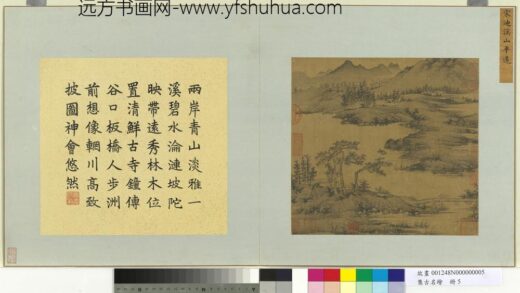 远方书画网-www.yfshuhua.com
宋迪溪山平遠
兩岸青山淡雅一
溪碧水淪漣坡陀
映帶遠秀林木位
置清鮮古寺鐘傳
谷口板橋人步洲
前想像輞川高致
披圖神會悠然
故畫 001248N000000005
集古名繪 冊 5